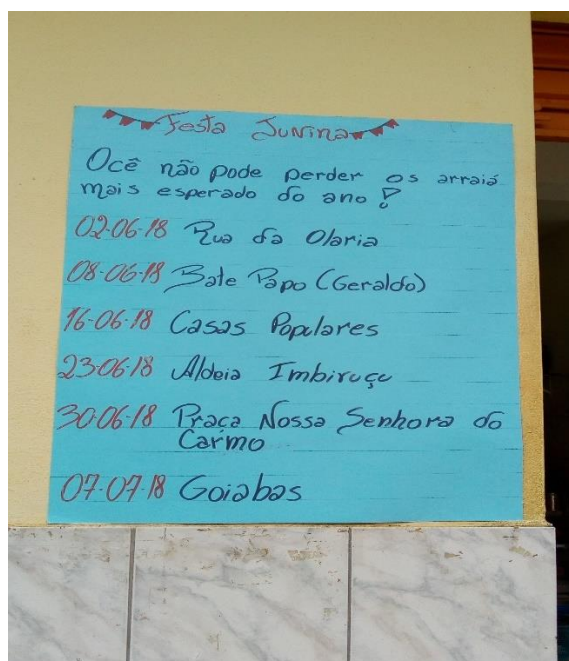 Festa Junina
Ocê não pode perder os arraiá
mais esperado do ano!
02-06-18 Rua da Olaria
08-06-18 Bate Papo (Geraldo)
16-06-18 Casas Populares
23-06-18 Aldeia Imbiruçu
30-06-18 Praça Nossa Senhora do
Carmo
07-07-18 Goiabas